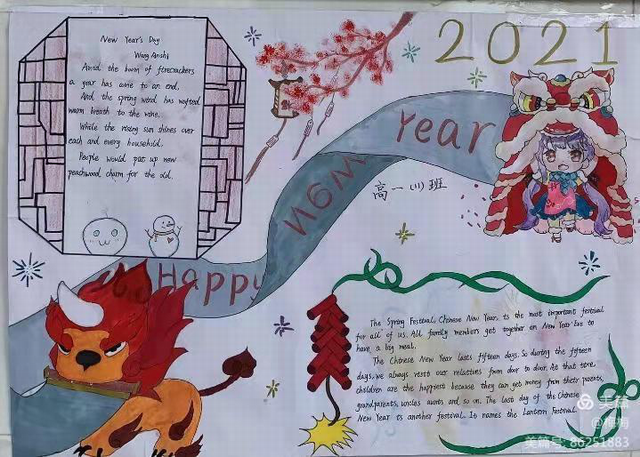 New Year's Day
Wang Anshi
Amid the boom of firecrackers
a year has come to an end.
And the spring wind has wafted
warm breath to the wine.
While the rising sun shines over
each and every household.
People would put up new
peachwood charm for the old.
2021
Happy New Year
高一(1)班
The Spring Festival, Chinese New Year, is the most important festival
for all of us. All family members get together on New Year Eve to
have a big meal.
The Chinese New Year lasts fifteen days. So during the fifteen
days, we always visit our relatives from door to door. At that time,
children are the happiest because they can get money from their parents,
grandparents, uncles, aunts, and so on. The last day of the Chinese
New Year is another festival. It names the Lantern Festival.
美篇
美篇号: 86251883